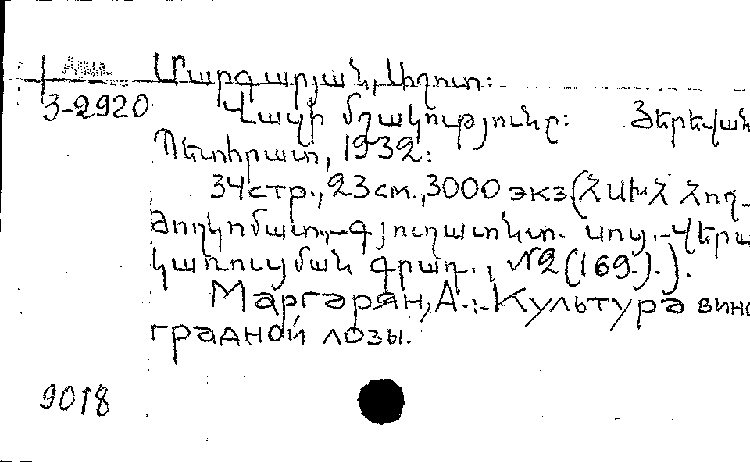 Մարգարյան, Աշոտ:
3-2920 Վազի մշակությունը: Յերեվան
Պետհրատ, 1932:
34 стр., 23 см., 3000 экз. (ՀՍԽՀ Հող-
ժողկոմատ.-գյուղատնտ. սոց.-վերա
կառուցման գրադ., №2(169).).
Маргарян, А.:-Культура вино
градной лозы.
9018